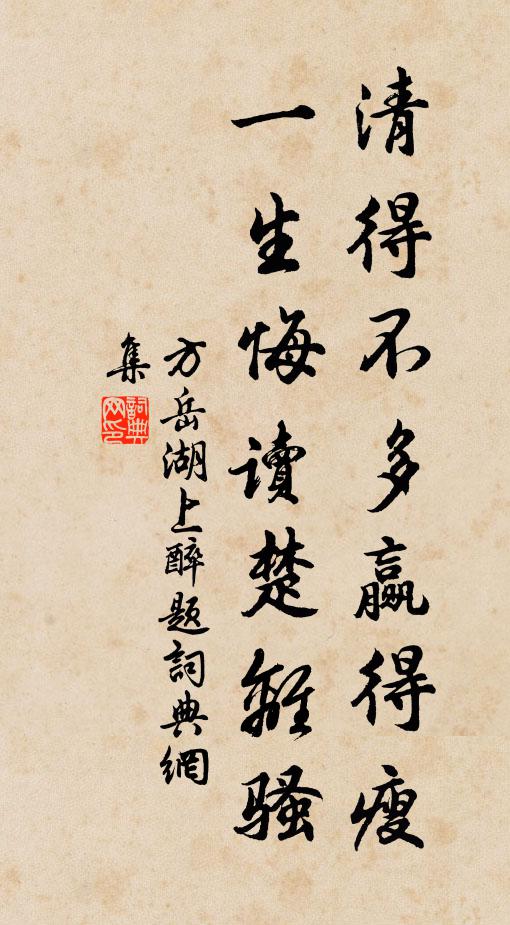 清得不多赢得瘦
一生悔读楚離骚
方岳湖上醉题詞典網
集
詞典网印